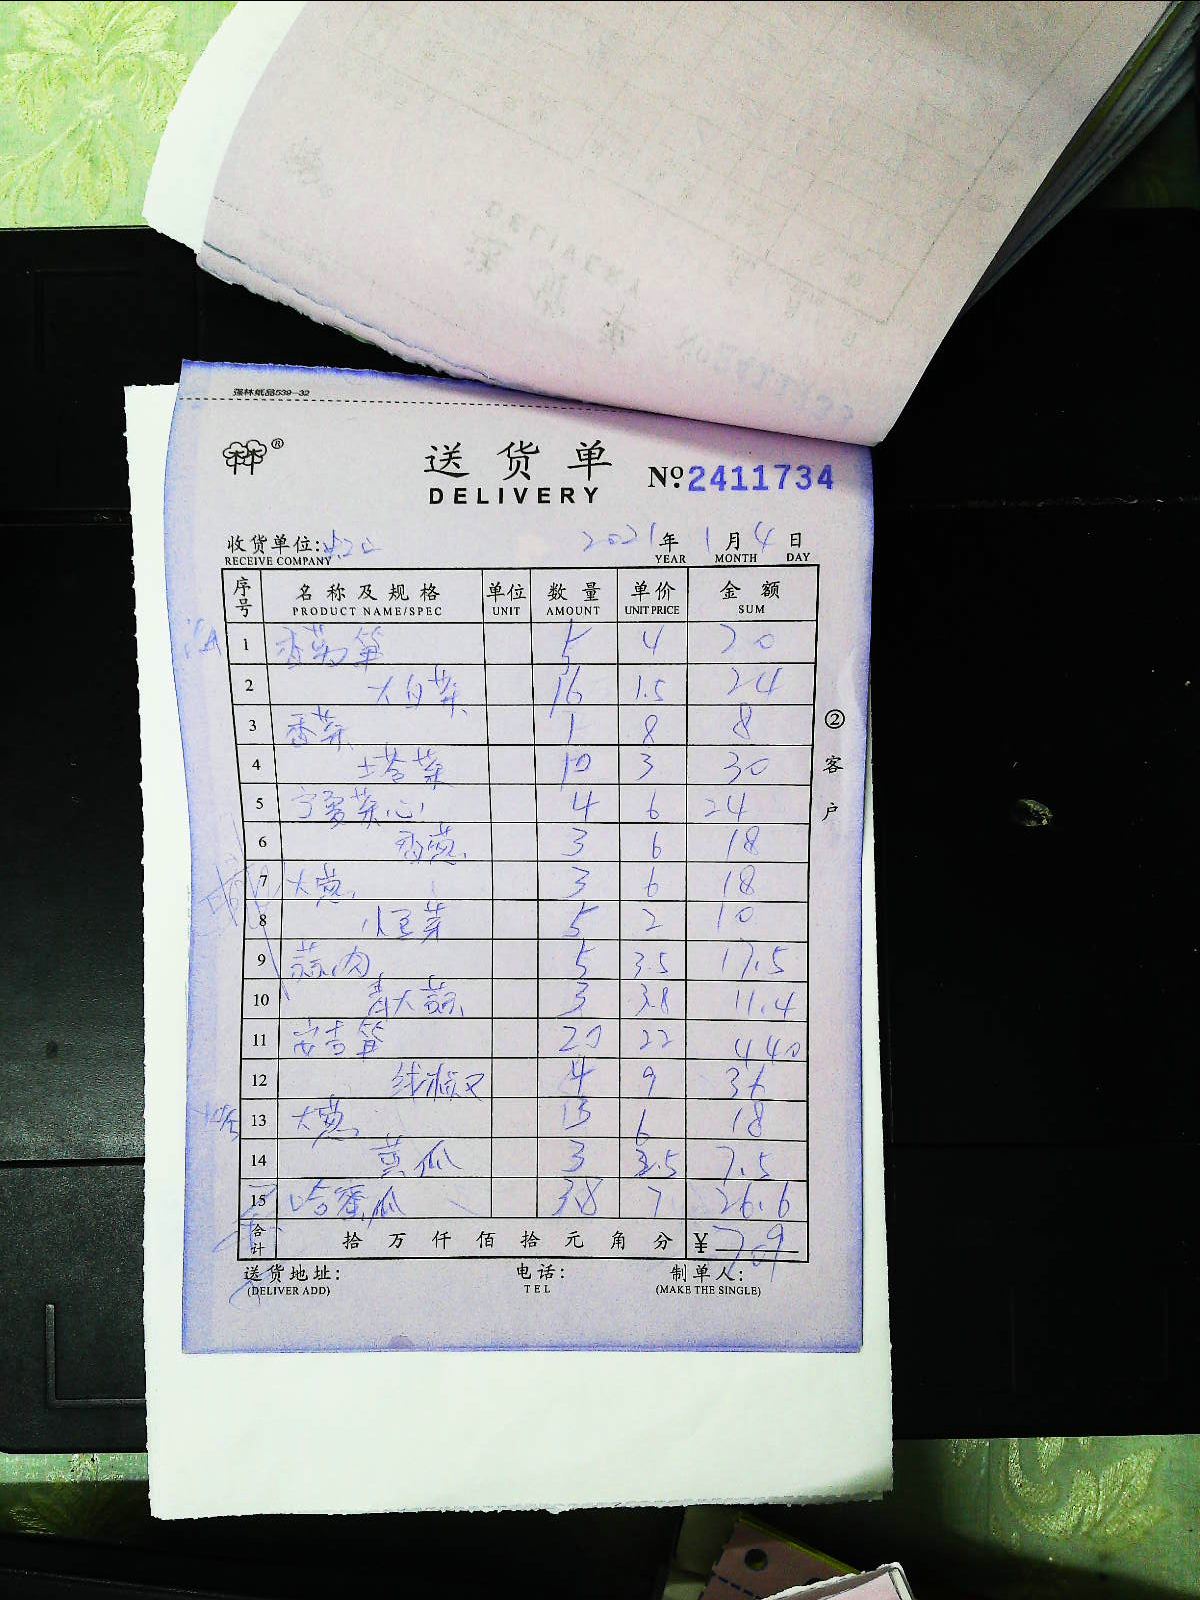 强林纸品539-32
送货单 №2411734
DELIVERY
收货单位: 2021年1月4日
RECEIVE COMPANY YEAR MONTH DAY
序号 名称及规格 单位 数量 单价 金额
PRODUCT NAME/SPEC UNIT AMOUNT UNIT PRICE SUM
1 香莴笋 5 4 20
2 大白菜 16 1.5 24
3 香菜 1 8 8
4 塔菜 10 3 30
5 宁夏菜心 4 6 24
6 香葱 3 6 18
7 大葱 3 6 18
8 小豆芽 5 2 10
9 蒜肉 5 3.5 17.5
10 青大蒜 3 3.8 11.4
11 安吉笋 20 22 440
12 线椒 4 9 36
13 大葱 3 6 18
14 黄瓜 3 2.5 7.5
15 哈蜜瓜 3.8 7 26.6
合计 拾万仟佰拾元角分 ¥709
②客户
送货地址: 电话: 制单人:
(DELIVER ADD) TEL (MAKE THE SINGLE)